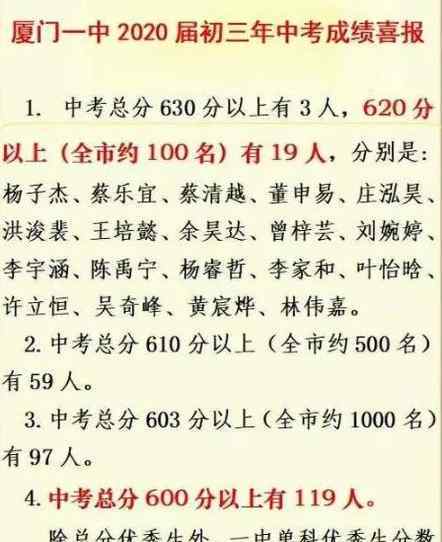 厦门一中 2020 届初三年中考成绩喜报
1. 中考总分 630 分以上有 3 人，620 分
以上（全市约 100 名）有 19 人，分别是：
杨子杰、蔡乐宜、蔡清越、董申易、庄泓昊、
洪浚裴、王培懿、余昊达、曾梓芸、刘婉婷、
李宇涵、陈禹宁、杨睿哲、李家和、叶怡晗、
许立恒、吴奇峰、黄宸烨、林伟嘉。
2. 中考总分 610 分以上（全市约 500 名）
有 59 人。
3. 中考总分 603 分以上（全市约 1000 名）
有 97 人。
4. 中考总分 600 分以上有 119 人。
除总分优秀生外，一中单科优秀生分数